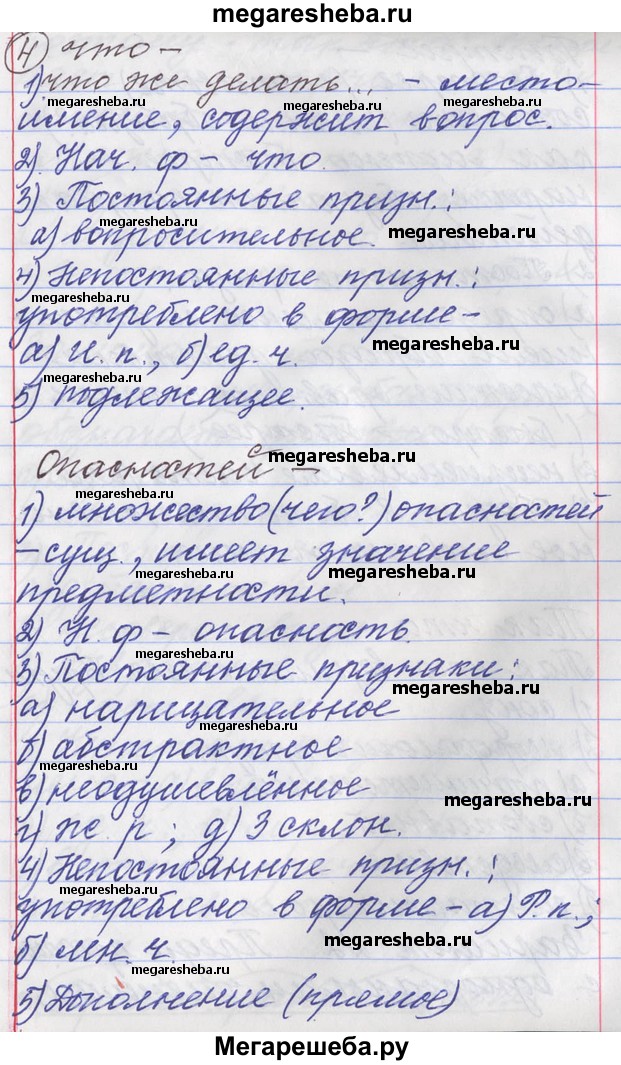 megaresheba.ru
④ что –
1) что же делать... – место-
megaresheba.ru megaresheba.ru
имение, содержит вопрос.
megaresheba.ru
2). Нач. ф – что.
3) Постоянные призн.:
megaresheba.ru
а) вопросительное. megaresheba.ru
4) Непостоянные призн.:
megaresheba.ru
употреблено в форме –
а) И. п., б) ед. ч. megaresheba.ru
megaresheba.ru
5) подлежащее.
Опасностей с – megaresheba.ru
megaresheba.ru
1) множество (чего?) опасностей
– сущ., имеет значение
megaresheba.ru megaresheba.ru
предметности.
2) Н. ф – опасность.
megaresheba.ru
3) Постоянные признаки:
megaresheba.ru
а) нарицательное
б) абстрактное
megaresheba.ru
в) неодушевлённое megaresheba.ru
г) ж. р; д) 3 склон.
4) Непостоянные призн.:
megaresheba.ru
употреблено в форме – а) Р. п.;
б) мн. ч. megaresheba.ru
megaresheba.ru
5) Дополнение (прямое)
Мегарешеба.ру